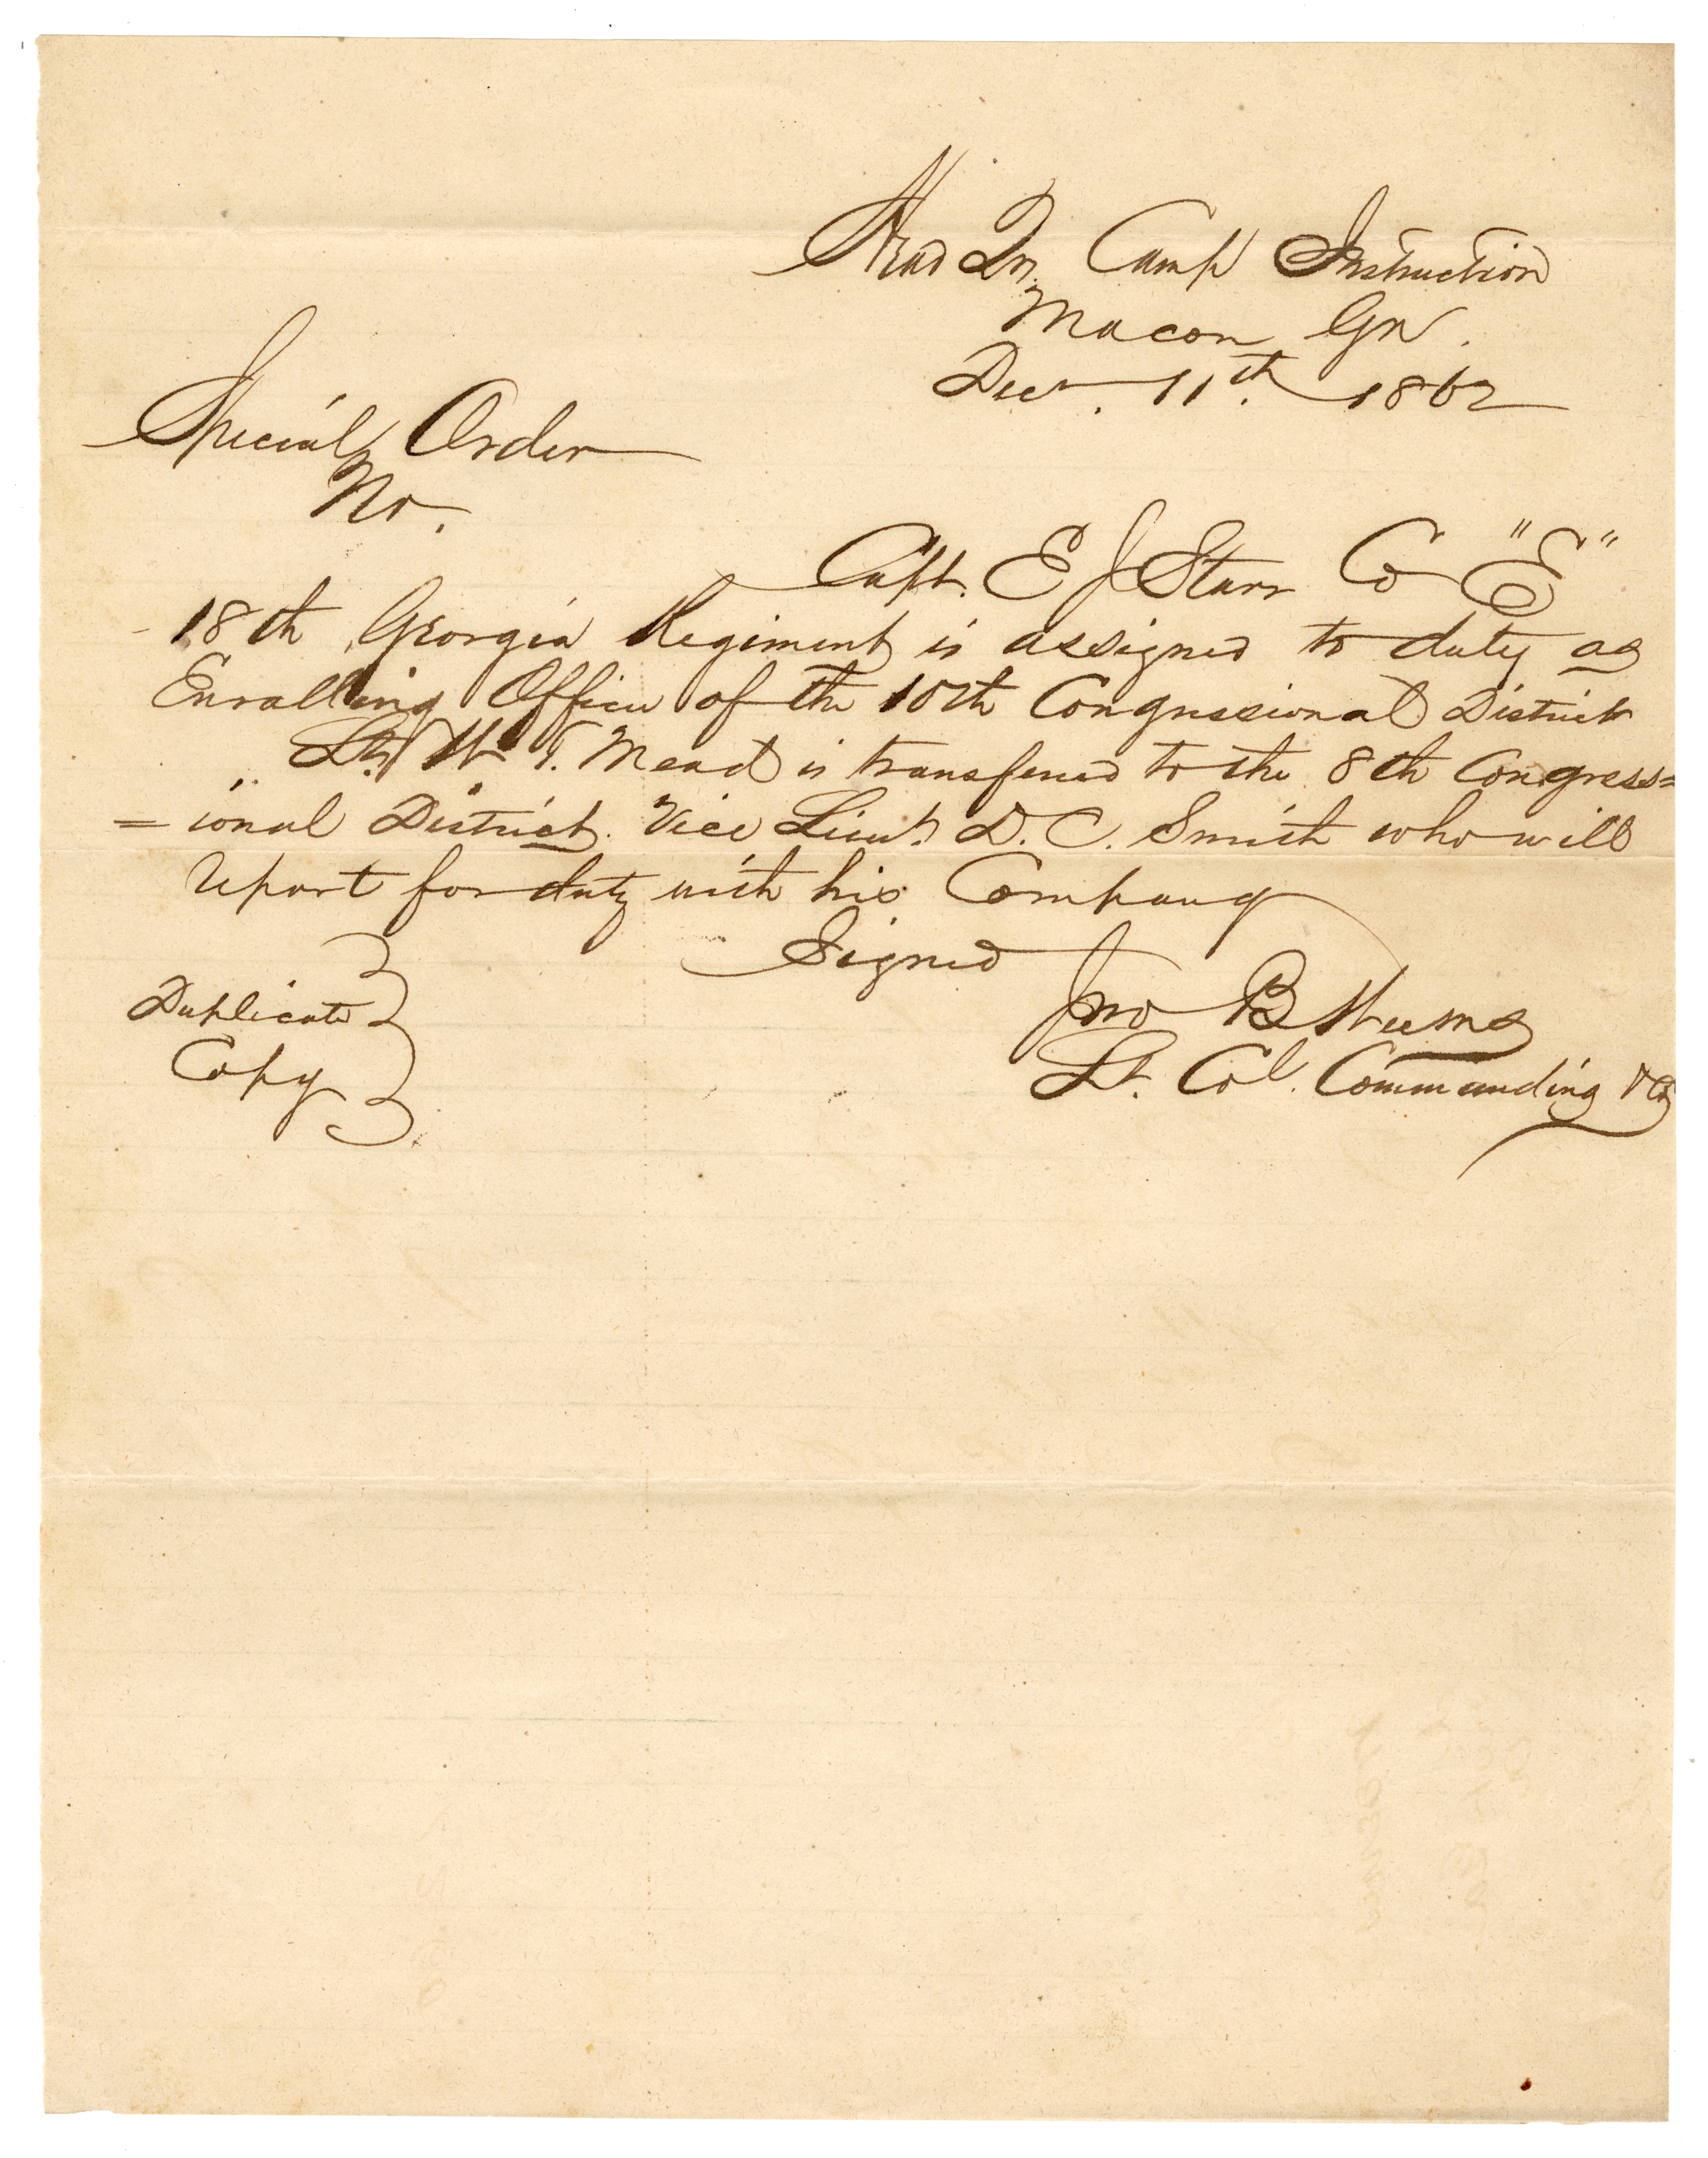 Head Qrs. Camp Instruction
Macon Ga.
Decr. 11th. 1862
Special Order
No.
Capt. E J Starr Co "E"
18th Georgia Regiment is assigned to duty as
Enrolling Officer of the 10th Congressional District
Lt. W T. Mead is transfered to the 8th Congress=
=ional District. Vice Lieut. D. C. Smith who will
report for duty with his Company
Signed
Jno B Weems
Lt. Col. Commanding &c
Duplicate
Copy